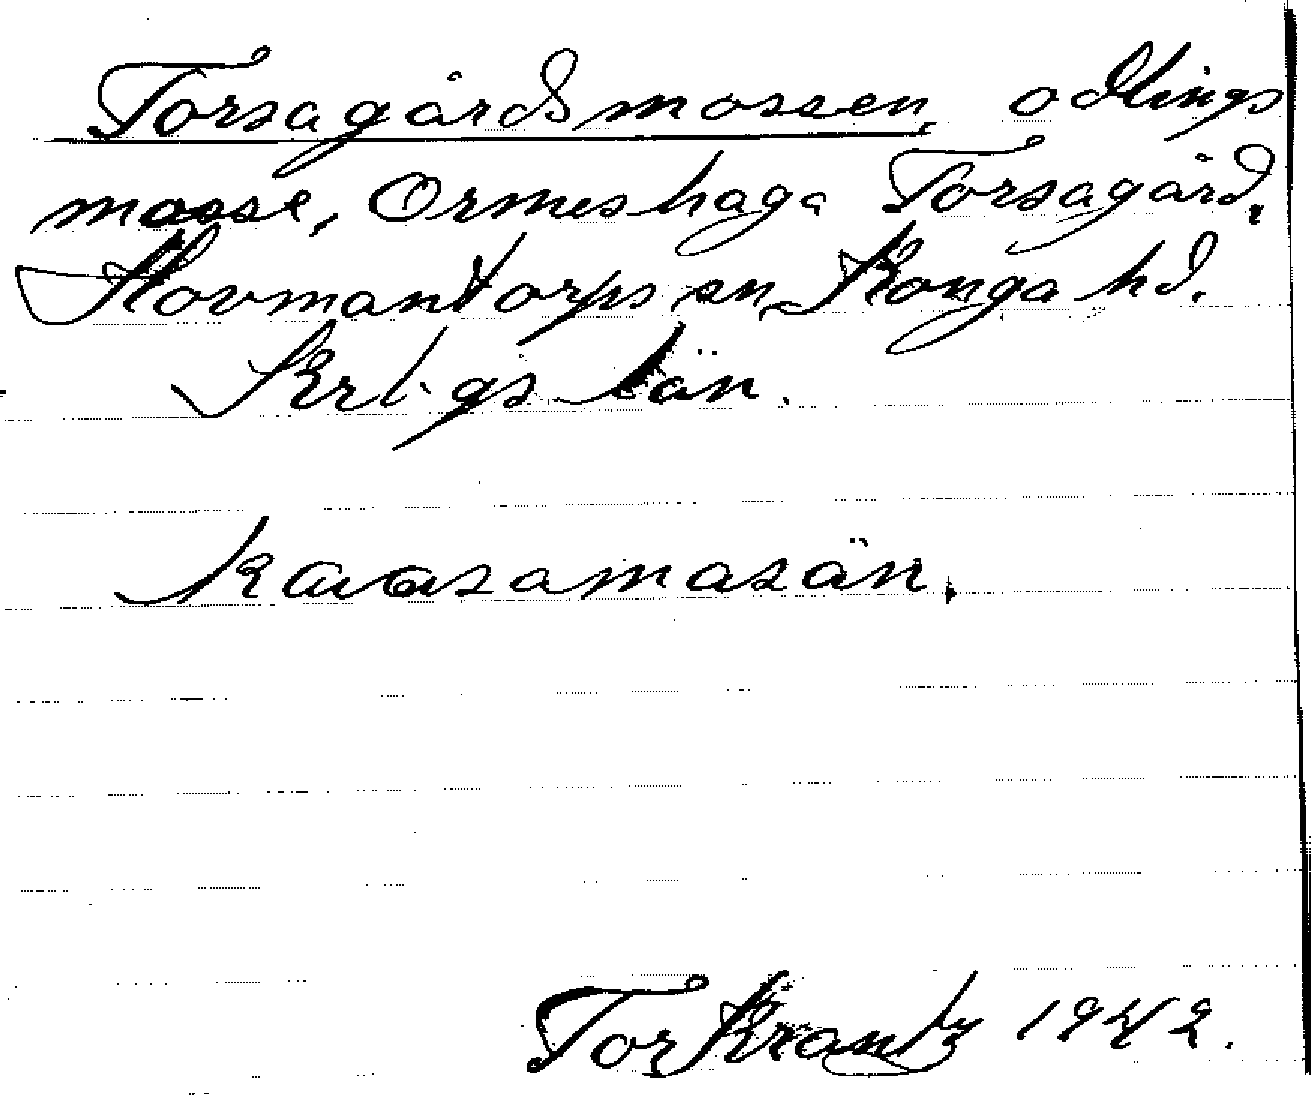 Torsagårdsmossen, odlings
mosse, Ormeshaga Torsagård,
Hovmantorps sn, Konga hd.
Krbgs län.
Tor Krantz 1942.